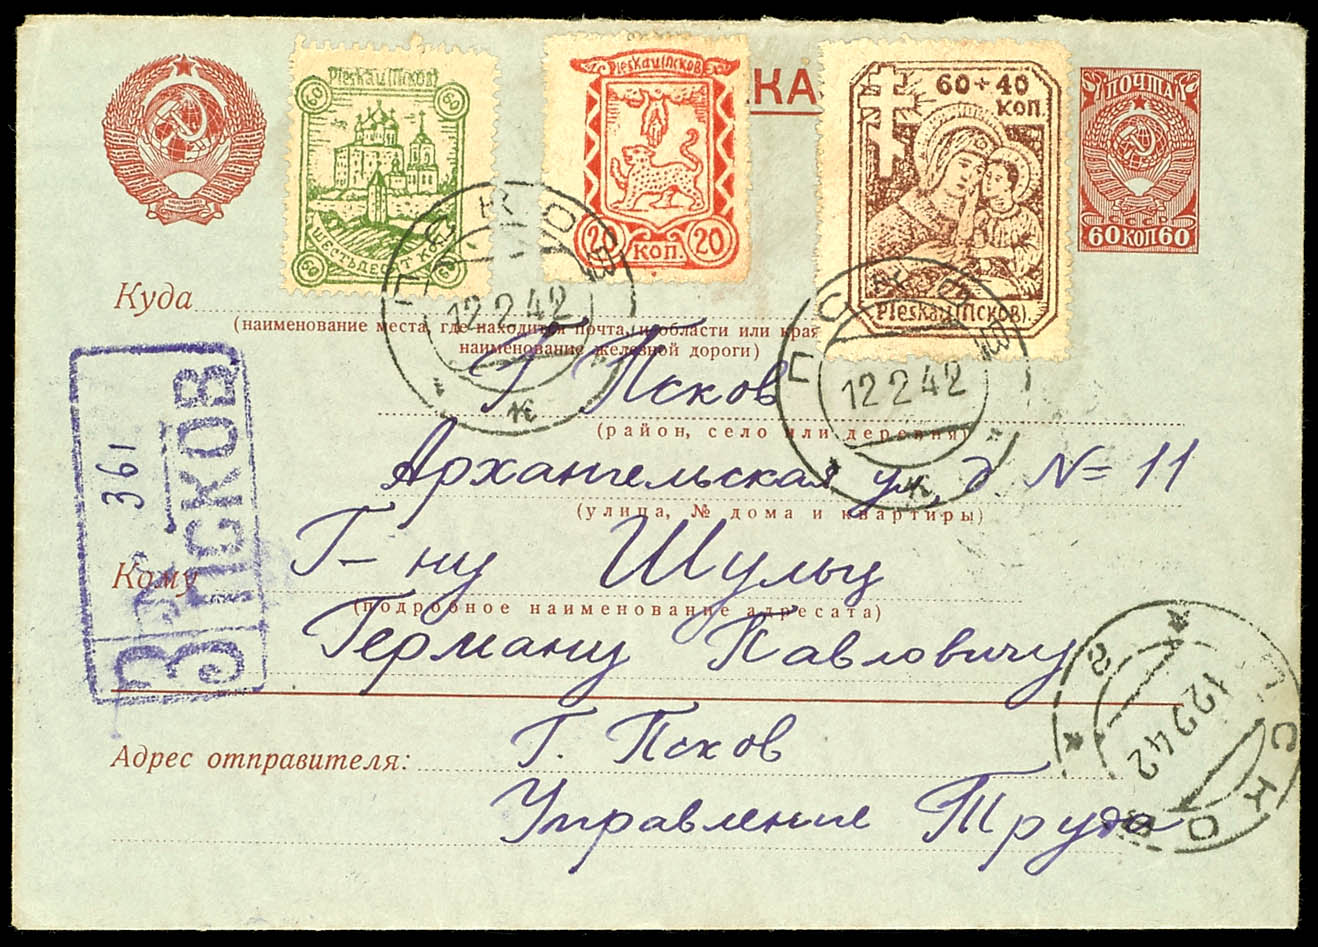 Pleskau (Псков)
60 60
ШЕСТЬДЕСЯТ КОП.
60 60
Pleskau (Псков)
20 КОП. 20
КА
60 + 40
КОП
Pleskau (Псков).
ПОЧТА
60 КОП 60
Куда
(наименование места, где находится почта, и области или края
наименование железной дороги)
ПСКОВ
12 2 42
ж
ПСКОВ
12 2 42
ж
Г. Псков
(район, село или деревня)
Архангельская ул, д № 11
(улица, № дома и квартиры)
З ПСКОВ
361
Кому
Г-ну Шульц
(подробное наименование адресата)
Герману Павловичу
Адрес отправителя:
Г. Псков
Управление Труда
ПСКОВ
12 2 42
2